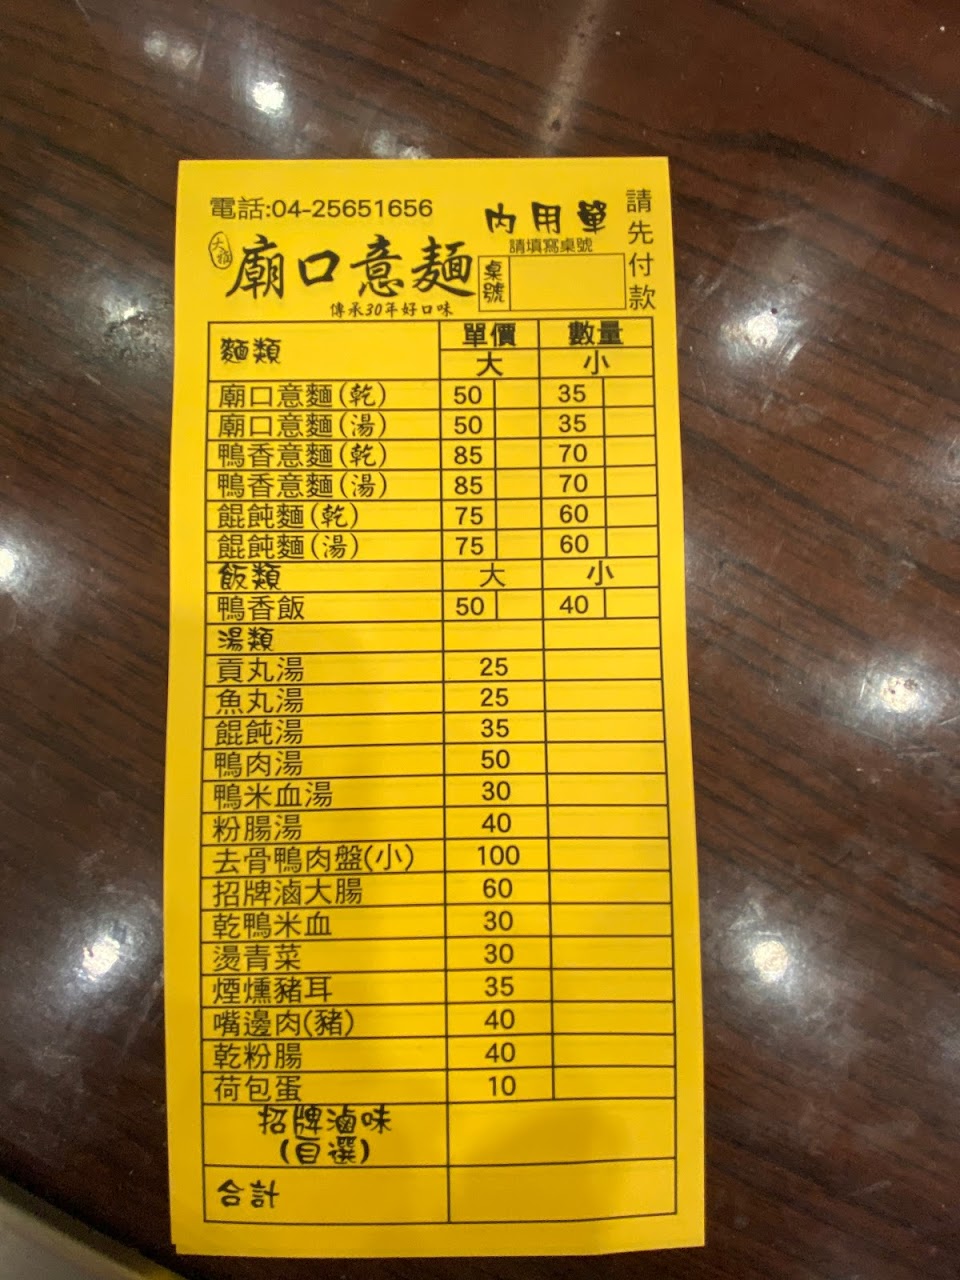 電話:04-25651656
內用單
請先付款
請填寫桌號
廟口意麵
桌號
傳承30年好口味
麵類 單價 數量
大 小
廟口意麵(乾) 50 35
廟口意麵(湯) 50 35
鴨香意麵(乾) 85 70
鴨香意麵(湯) 85 70
餛飩麵(乾) 75 60
餛飩麵(湯) 75 60
飯類 大 小
鴨香飯 50 40
湯類
貢丸湯 25
魚丸湯 25
餛飩湯 35
鴨肉湯 50
鴨米血湯 30
粉腸湯 40
去骨鴨肉盤(小) 100
招牌滷大腸 60
乾鴨米血 30
燙青菜 30
煙燻豬耳 35
嘴邊肉(豬) 40
乾粉腸 40
荷包蛋 10
招牌滷味
(自選)
合計